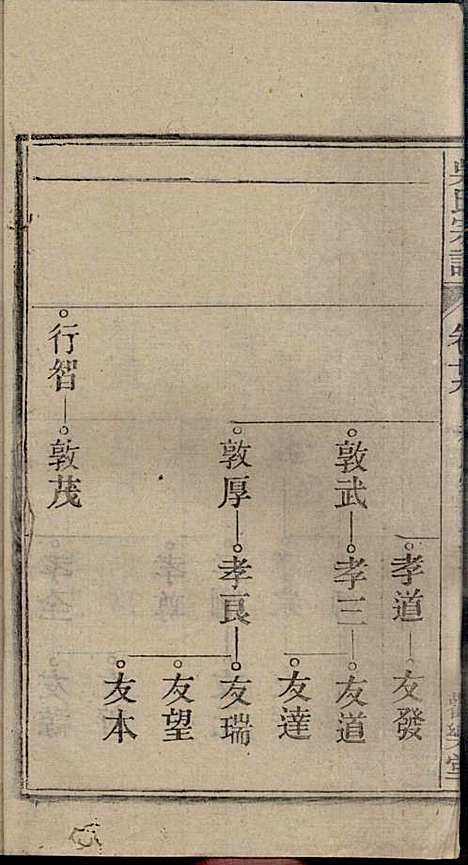 吳氏宗譜
孝道
友發
敦武
孝三
友道
友達
敦厚
孝良
友瑞
友望
友本
行智
敦茂